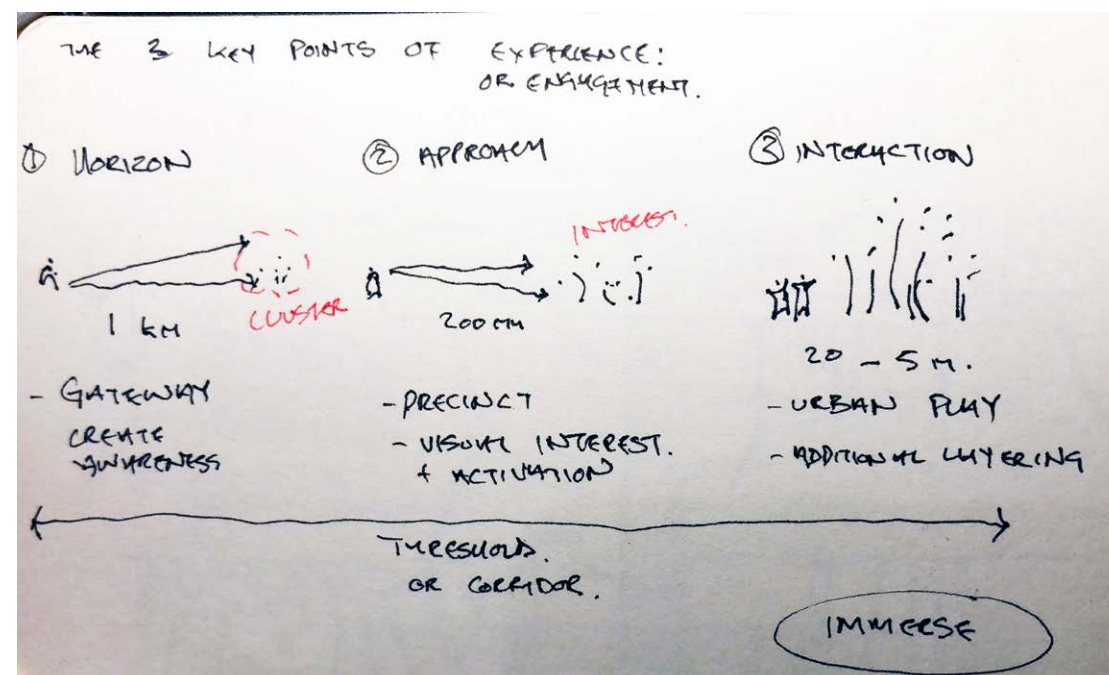 THE 3 KEY POINTS OF EXPERIENCE:
OR ENGAGEMENT.
① HORIZON
1 KM
CLUSTER
- GATEWAY
CREATE
AWARENESS
② APPROACH
INTEREST.
200 M
- PRECINCT
- VISUAL INTEREST.
+ ACTIVATION
③ INTERACTION
20 - 5 M.
- URBAN PLAY
- ADDITIONAL LAYERING
THRESHOLD.
OR CORRIDOR.
IMMERSE